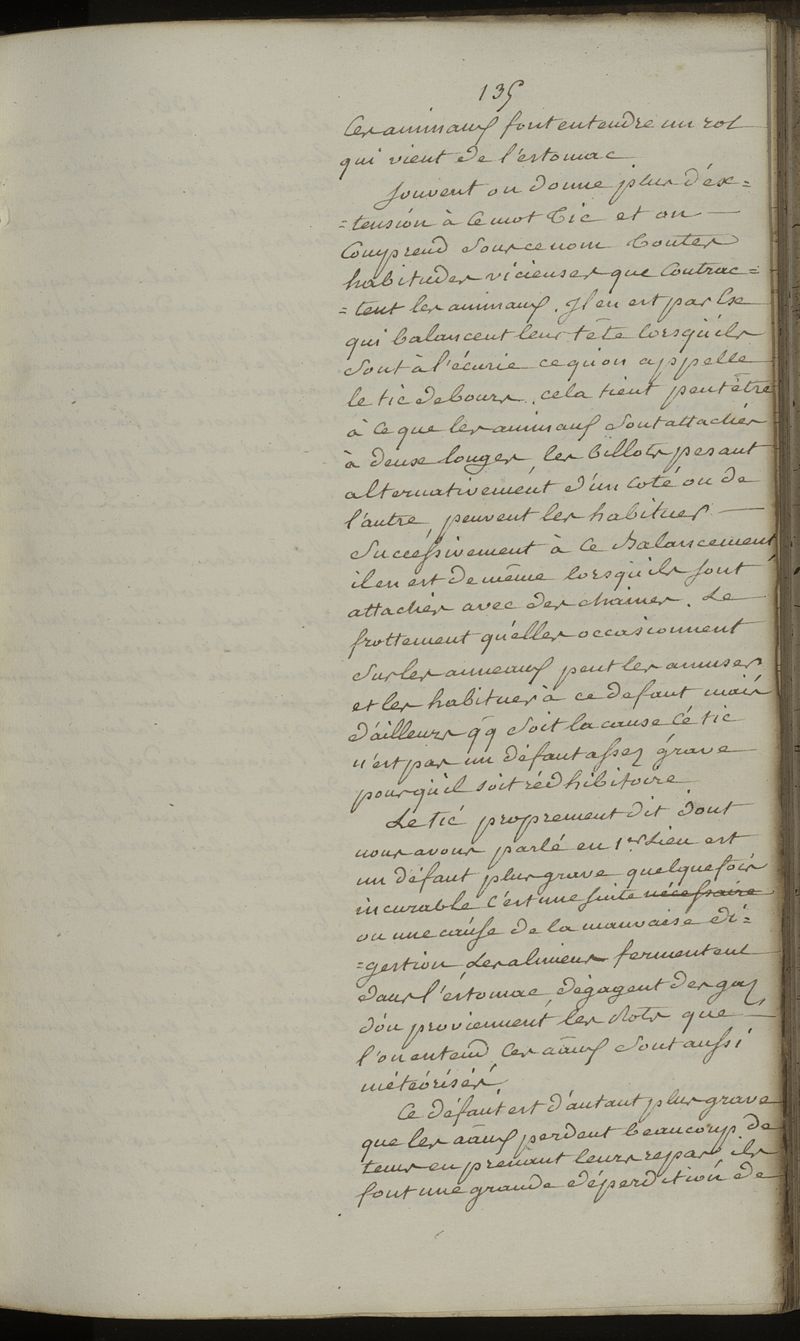 135
Ces animaux font entendre un rot
qui vient de l'estomac
Souvent on donne plus d'ex=
=tension à ce mot Tic et on —
Comprend sous ce nom toutes
habitudes vicieuses que Contrac=
=tent les animaux. Il en est par Ex
qui balancent leur tête lorsqu'ils
sont à l'écurie ce qu'on appelle
le tic de l'ours. cela tient peut être
à ce que les animaux sont attachés
à deux longes, les billots pesant
alternativement d'un coté ou de
l'autre, peuvent les habituer —
Successivement à ce Balancement
il en est de même lorsqu'ils sont
attachés avec des chaines. Le
frottement qu'elles occasionnent
sur les anneaux peut les amuser
et les habituer à ce defaut mais
d'ailleurs qq soit la cause Cé tic
n'est pas un défaut assez grave
pour qu'il soit rédhibitoire
Le tic proprement dit dont
nous avons parlé en 1er Lieu est
un défaut plus grave quelquefois
incurable C'est une suite nécessaire
ou une cause de la mauvaise di=
=gestion Les alimens fermentent
dans l'éstomac, dégagent des gaz
d'ou proviennent les Rots que —
l'on entend, Ces aãux sont aussi
météorisés.
Ce défaut est d'autant plus grave
que les aãux perdent beaucoup de
tems en prenant leurs repas, ils
font une grande déperdition de